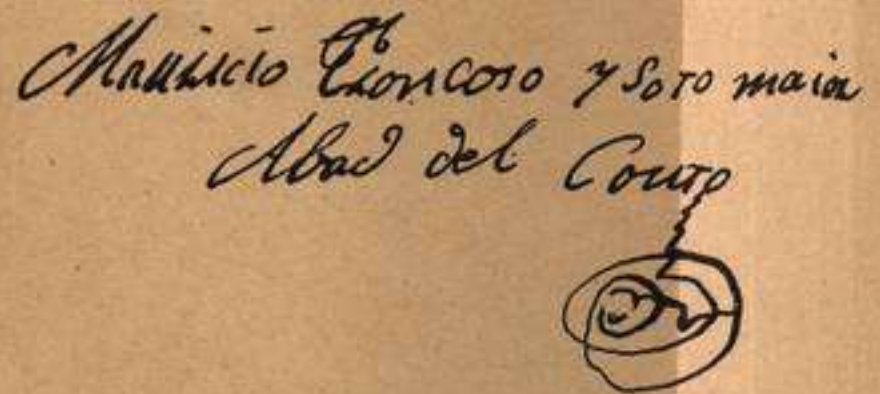 Mauricio Troncoso y Soto maior
Abad del Couto